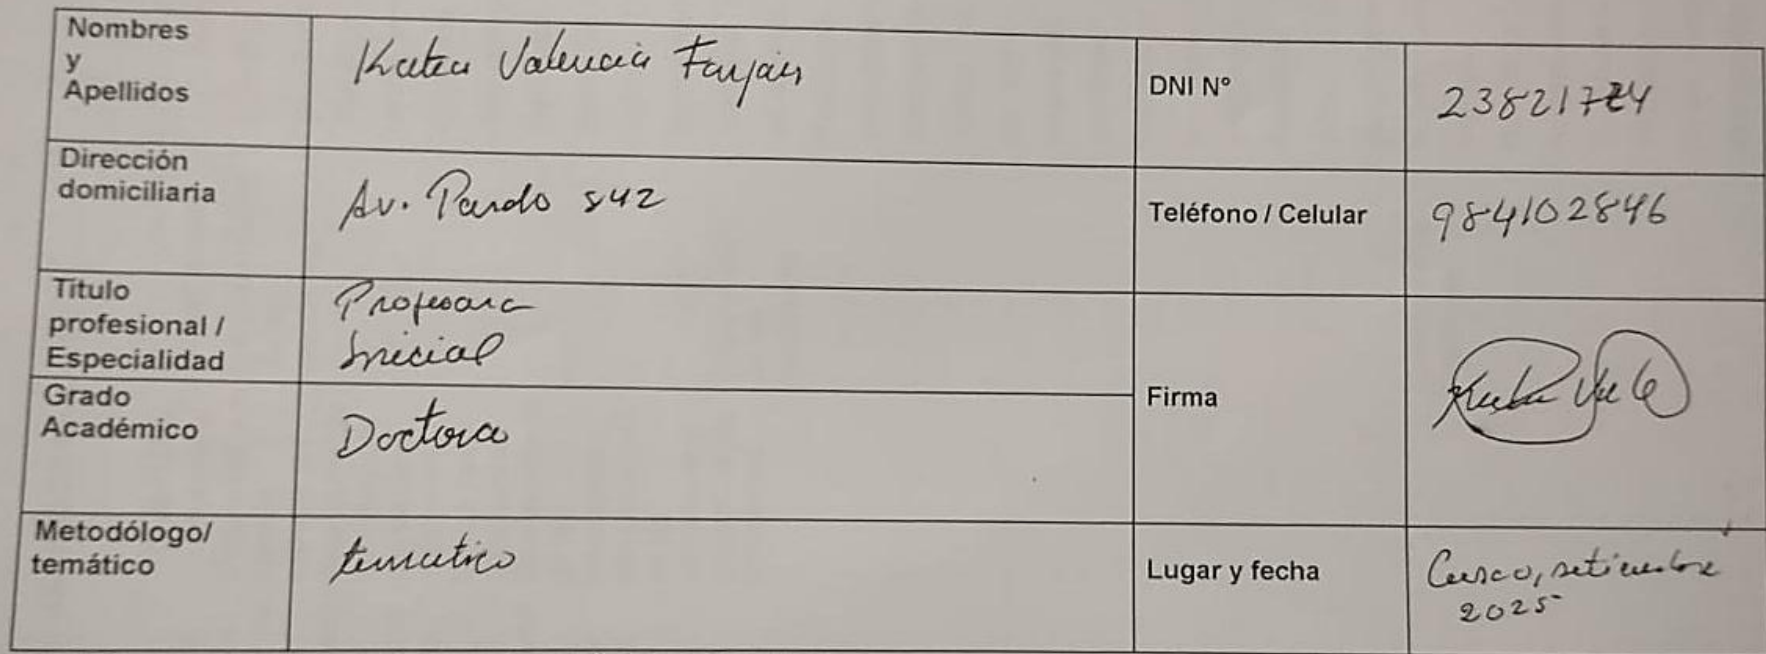 Nombres
y
Apellidos
Valencia Farfán
DNI N°
Dirección
domiciliaria
Av. Pardo 542
Teléfono / Celular
984102846
Titulo
profesional /
Especialidad
Profesora
Inicial
Firma
Grado
Académico
Doctora
Metodólogo/
temático
tematico
Lugar y fecha
Cusco, setiembre
2025